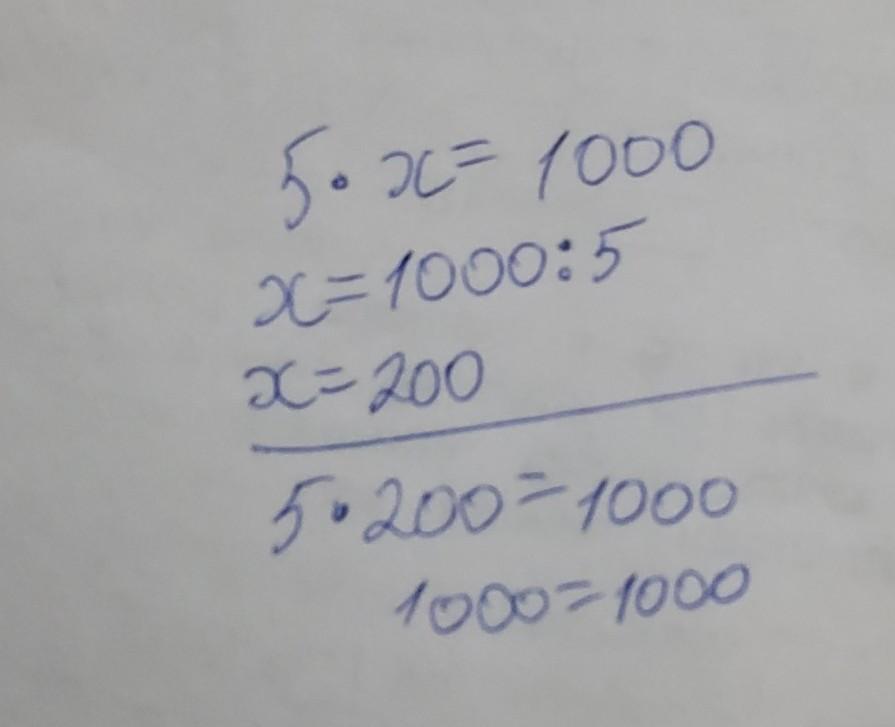 5 · x = 1000
x = 1000 : 5
x = 200
5 · 200 = 1000
1000 = 1000